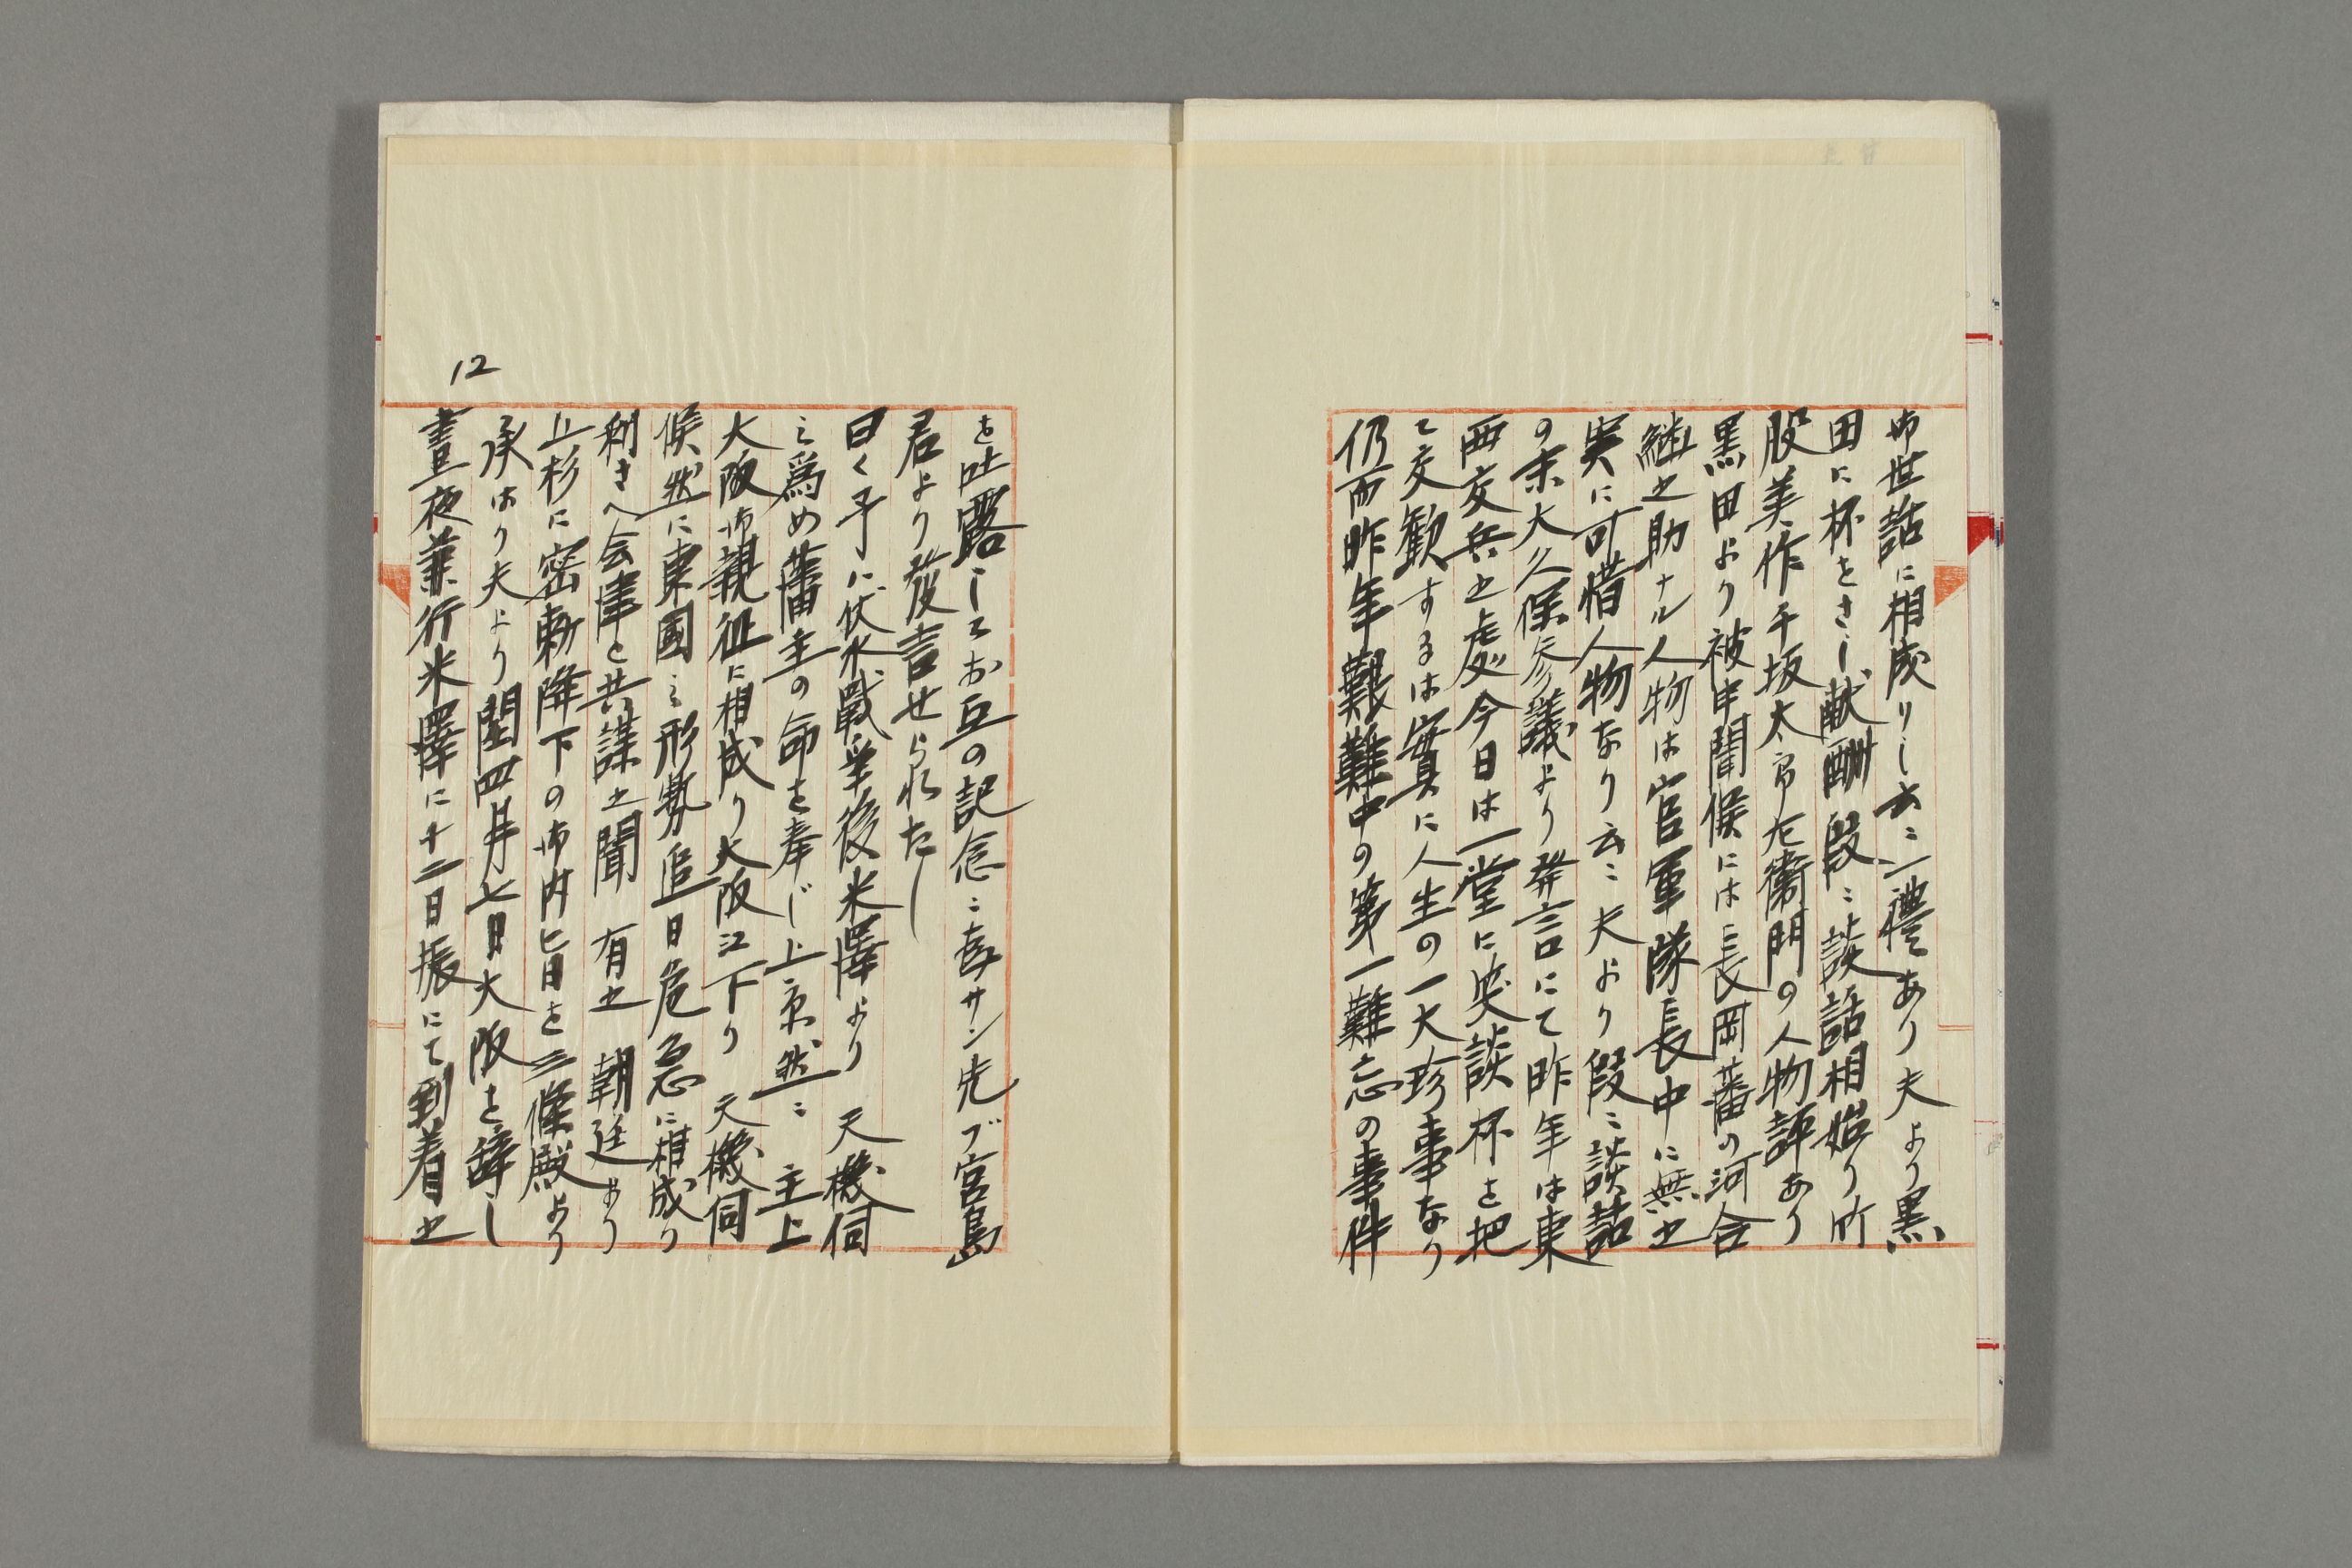 御世話に相成りし云々一禮あり夫より黒
田に杯をさし献酬段々談話相始り竹
股美作千坂太郎左衛門の人物評あり
黒田より被申聞候には長岡藩の河合
継之助ナル人物は官軍隊長中に無之
実に可惜人物なり云々夫より段々談話
の末大久保参議より発言にて昨年は東
西交兵之處今日は一堂に笑談杯を把
て交歓するは實に人生の一大珍事なり
仍而昨年艱難中の第一難忘の事件
を吐露してお互の記念ニ喜サン先ブ宮島
君より發言せられたし
曰く予は伏水戰争後米澤より 天機伺
之爲め藩主の命を奉じ上京然ニ 主上
大阪御親征に相成り大阪江下り 天機伺
候然に東國之形勢追日危急に相成り
剰さへ会津と共謀之聞 有之 朝廷より
上杉に密勅降下の御内旨を三條殿より
承はり夫より閏四月七日大阪を辞し
12
晝夜兼行米澤に十二日振にて到着之